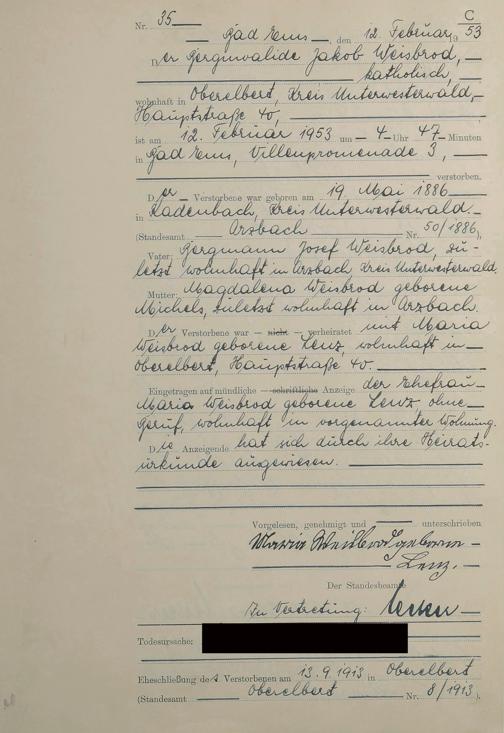 C
Nr. 35
Bad Ems, den 12. Februar 1953
Der Berginvalide Jakob Weisbrod,
katholisch,
wohnhaft in Oberelbert, Kreis Unterwesterwald,
Hauptstraße 40,
ist am 12. Februar 1953 um 4 Uhr 47 Minuten
in Bad Ems, Villenpromenade 3,
verstorben.
Der Verstorbene war geboren am 19. Mai 1886
in Kadenbach, Kreis Unterwesterwald.
(Standesamt Arzbach Nr. 50/1886),
Vater: Bergmann Josef Weisbrod, zu-
letzt wohnhaft in Arzbach, Kreis Unterwesterwald.
Mutter: Magdalena Weisbrod geborene
Michels, zuletzt wohnhaft in Arzbach.
Der Verstorbene war – nicht – verheiratet mit Maria
Weisbrod geborene Lenz, wohnhaft in
Oberelbert, Hauptstraße 40.
Eingetragen auf mündliche – schriftliche – Anzeige der Ehefrau
Maria Weisbrod geborene Lenz, ohne
Beruf, wohnhaft in vorgenannter Wohnung.
Die Anzeigende hat sich durch ihre Heirats-
urkunde ausgewiesen.
Vorgelesen, genehmigt und unterschrieben
Maria Weisbrod geborene
Lenz.
Der Standesbeamte
In Vertretung:
Todesursache:
Eheschließung des Verstorbenen am 13.9.1913 in Oberelbert
(Standesamt Oberelbert Nr. 8/1913).